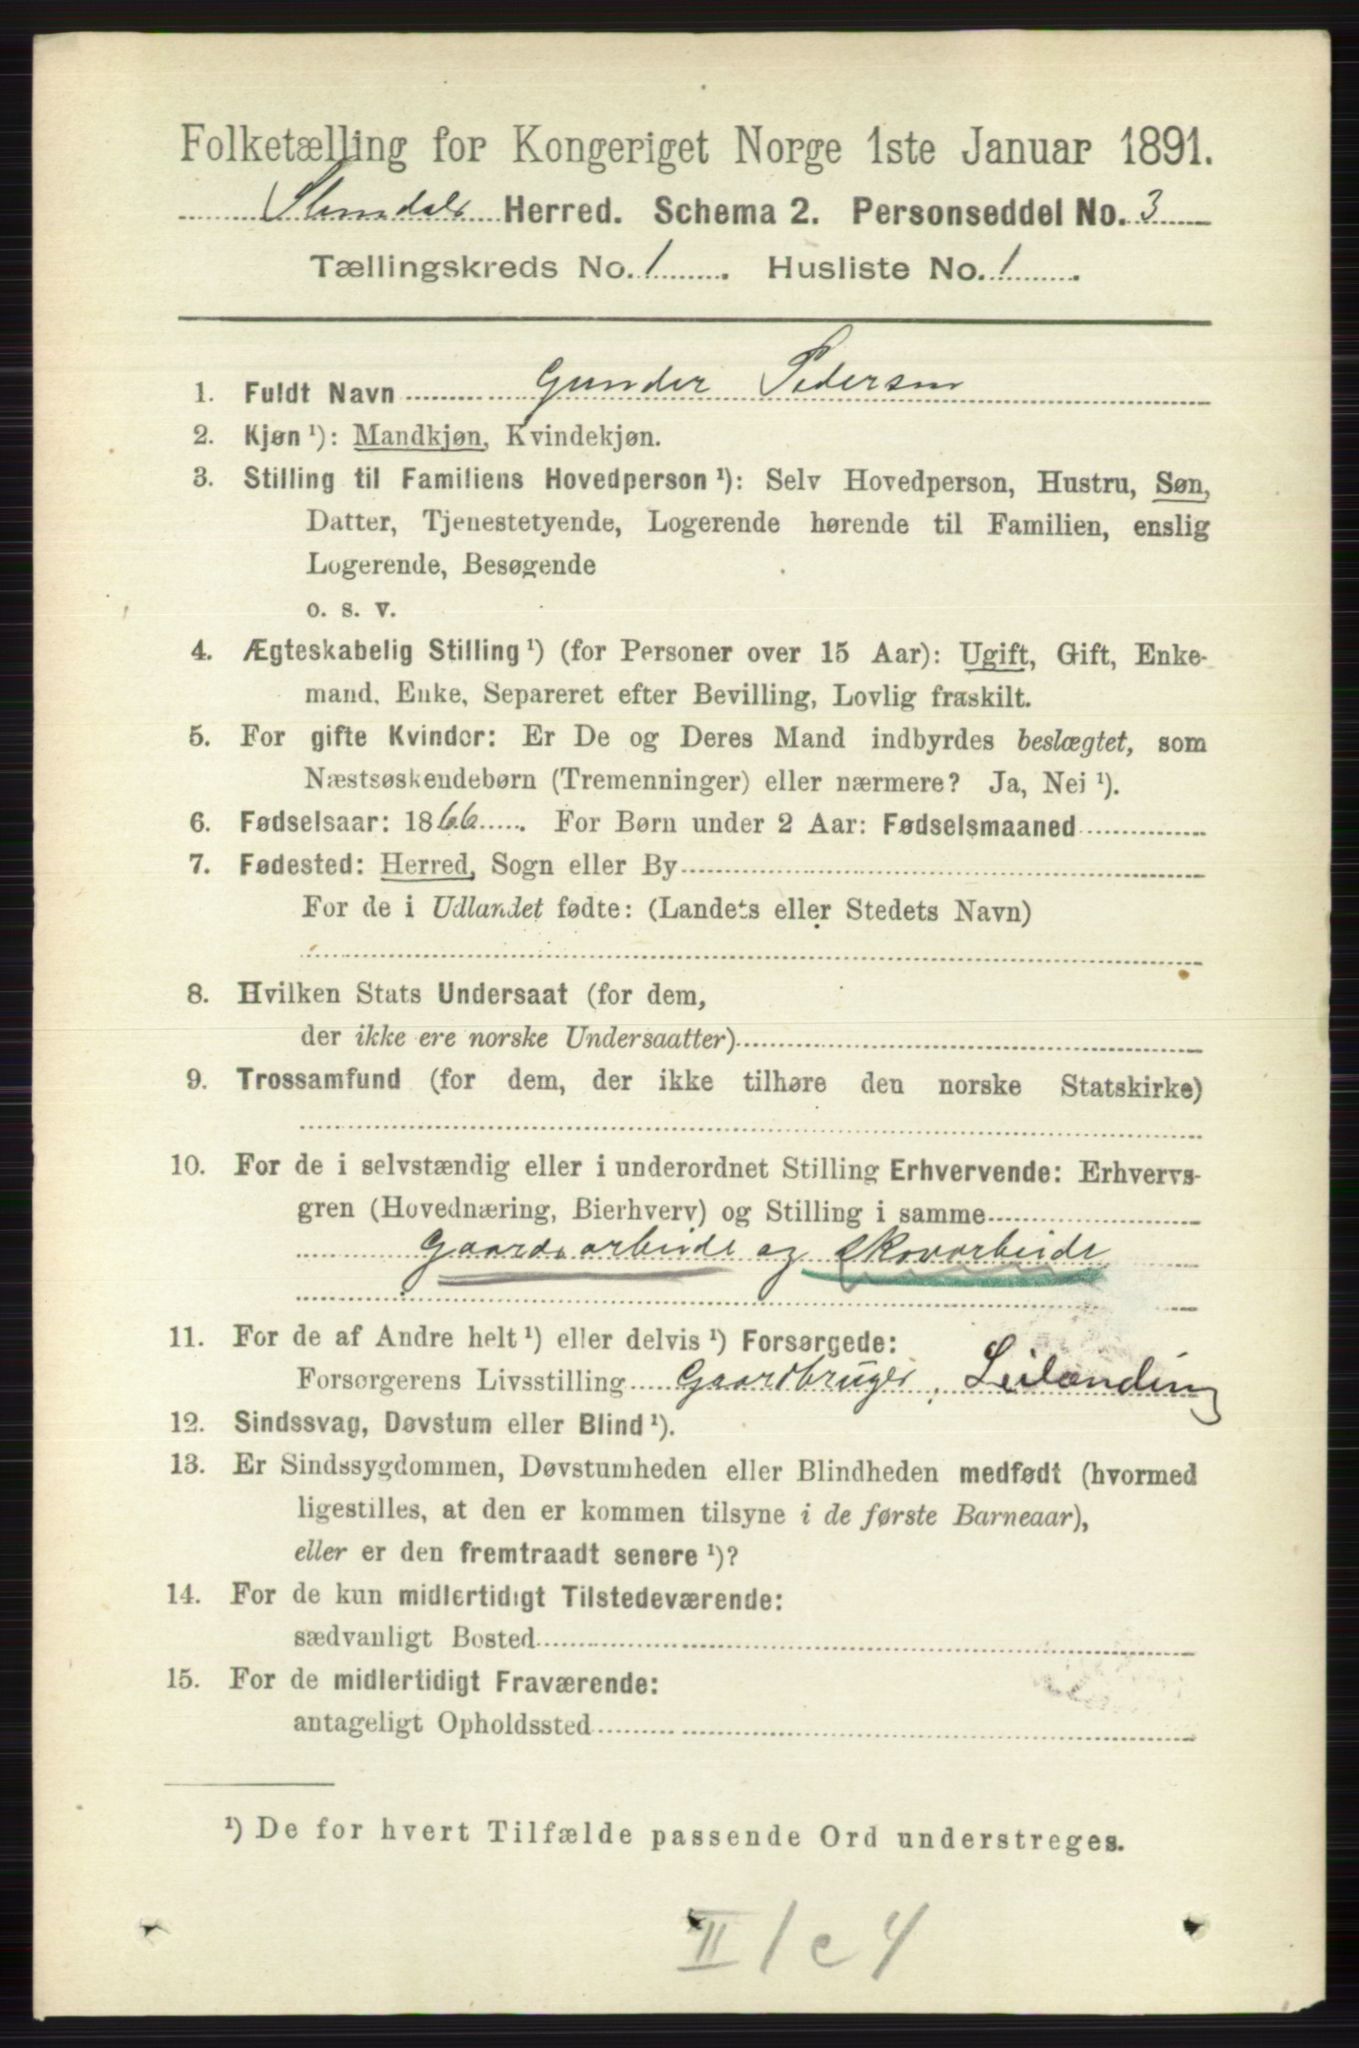 Folketælling for Kongeriget Norge 1ste Januar 1891.
Slemdals Herred. Schema 2. Personseddel No. 3
Tællingskreds No. 1. Husliste No. 1.
1. Fuldt Navn Gunder Pedersen
2. Kjøn ¹): Mandkjøn, Kvindekjøn.
3. Stilling til Familiens Hovedperson ¹): Selv Hovedperson, Hustru, Søn,
Datter, Tjenestetyende, Logerende hørende til Familien, enslig
Logerende, Besøgende
o. s. v.
4. Ægteskabelig Stilling ¹) (for Personer over 15 Aar): Ugift, Gift, Enke-
mand, Enke, Separeret efter Bevilling, Lovlig fraskilt.
5. For gifte Kvinder: Er De og Deres Mand indbyrdes beslægtet, som
Næstsøskendebørn (Tremenninger) eller nærmere? Ja, Nei ¹).
6. Fødselsaar: 1866. For Børn under 2 Aar: Fødselsmaaned
7. Fødested: Herred, Sogn eller By
For de i Udlandet fødte: (Landets eller Stedets Navn)
8. Hvilken Stats Undersaat (for dem,
der ikke ere norske Undersaatter)
9. Trossamfund (for dem, der ikke tilhøre den norske Statskirke)
10. For de i selvstændig eller i underordnet Stilling Erhvervende: Erhvervs-
gren (Hovednæring, Bierhverv) og Stilling i samme
Gaardsarbeide og skovarbeide
11. For de af Andre helt ¹) eller delvis ¹) Forsørgede:
Forsørgerens Livsstilling Gaardbruger, Leilænding
12. Sindssvag, Døvstum eller Blind ¹).
13. Er Sindssygdommen, Døvstumheden eller Blindheden medfødt (hvormed
ligestilles, at den er kommen tilsyne i de første Barneaar),
eller er den fremtraadt senere ¹)?
14. For de kun midlertidigt Tilstedeværende:
sædvanligt Bosted
15. For de midlertidigt Fraværende:
antageligt Opholdssted
¹) De for hvert Tilfælde passende Ord understreges.
II 1 c 4